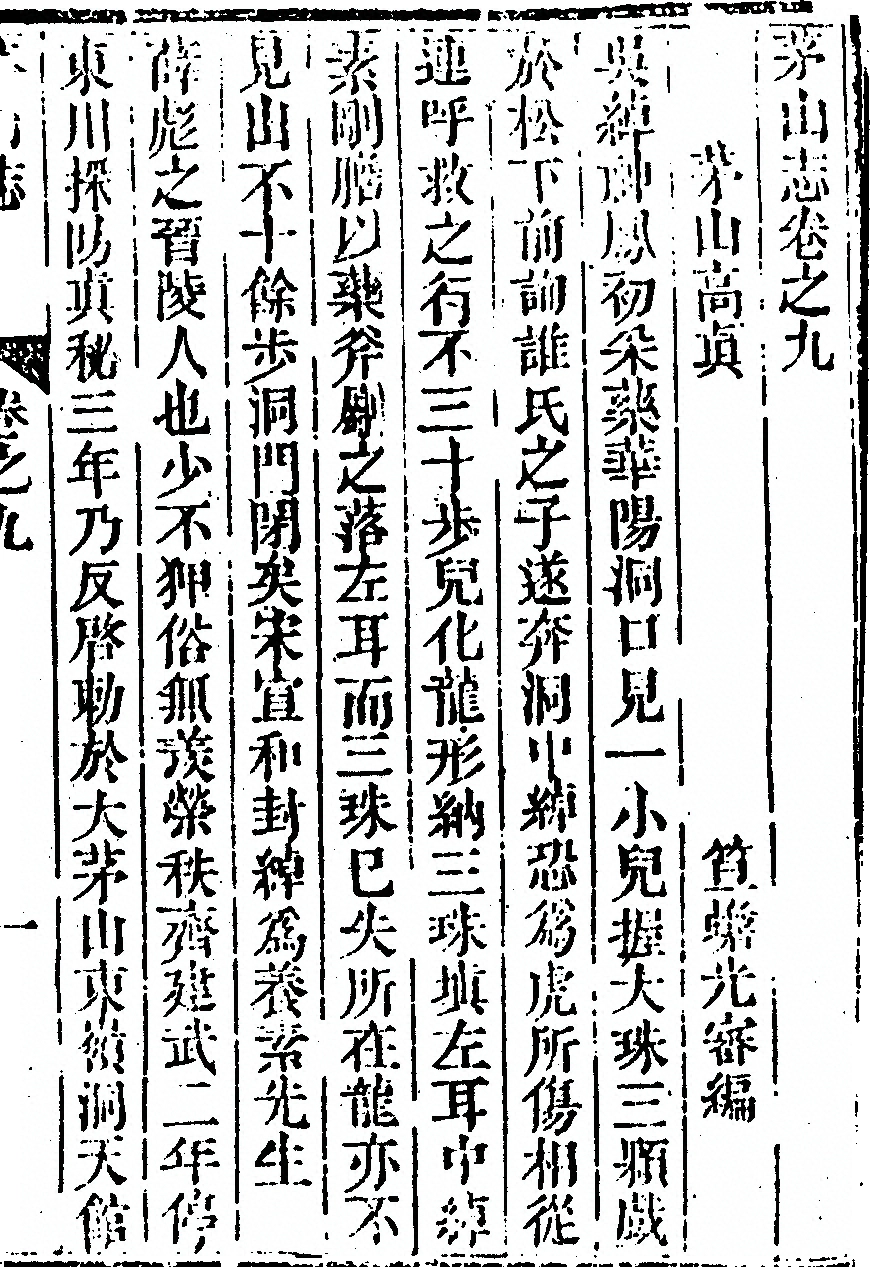 茅山志卷之九
茅山高眞 笪蟾光審編
吳綽神鳳初朵藥華陽洞口見一小兒握大珠三顆戲
於松下前詢誰氏之子遂奔洞中綽恐爲虎所傷相從
連呼救之行不三十步兒化龍形納三珠塡左耳中綽
素剛膽以藥斧斸之落左耳而三珠已失所在龍亦不
見出不十餘步洞門閉矣宋宣和封綽爲養素先生
薛彪之晉陵人也少不狎俗無羨榮秩齊建武二年停
東川採访眞秘三年乃反啓勅於大茅山東嶺洞天館
茅山志 卷之九 一